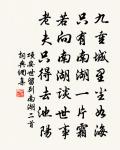 九重城里尘如海
只有南湖一片霜
若向南湖谈世事
老夫只得去沧阳
项安世留别南湖二首
词典网集